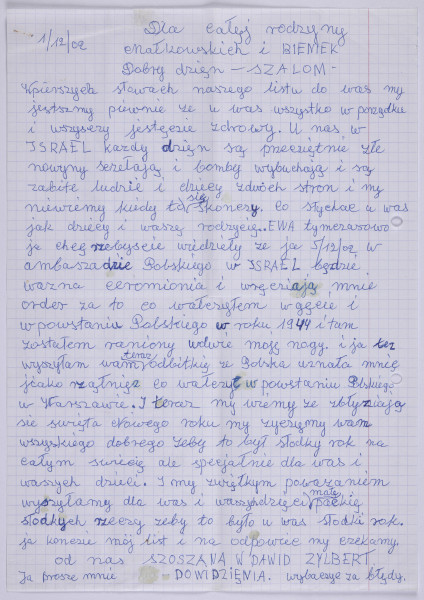 1/12/02
Dla całej rodziny
Małkowskich i BIENIEK
Dobry dzięn — SZALOM -
W pierszych słowach naszego listu do was my
jestesmy piewnie ze u was wszystko w porządku
i wszyscy jesteście zdrowy. U nas w
ISRAEL kazdy dzięn są przeciętnie złe
nowyny szełają i bomby wybuchają i są
zabite ludzie i dziecy zdwóch stron i my
niewiemy kiedy to się skonczy. Co stychac u was
jak dziecy i waszę rodzycię.. EWA tymczasowo
ja chcę zebyscie widziely ze ja 5/12/02 w
ambasadzie Polskiego w ISRAEL będzie
wazna ceromonia i wręczają mnie
order za to co walczyłem w gęcie i
w powstaniu Polskiego w roku 1944 i tam
zostałem raniony w dwie moję nogy. i ja tez
wysyłam wam teraz odbitkię ze Polska uznała mnię
jcako zołniez co walczył w powstaniu Polskiego
w Warszawie. I teraz my wiemy ze zblyzają
sie swięta Nowego roku my zyczymy wam
wszyskiego dobrego zeby to był słodky rok na
całym swiecie ale specjalnie dla was i
waszych dzieci. I my zwiętkym powazaniem
wysyłamy dla was i waszychdzięci małę packię
słodkych rzeczy zeby to było u was słodki rok.
ja koncze mój list i na odpowie my czekamy.
od nas SZOSZANA W DAWID ZYLBERT
Ja prosze mnie DOWIDZĘNIA. wybaczyc za błędy.